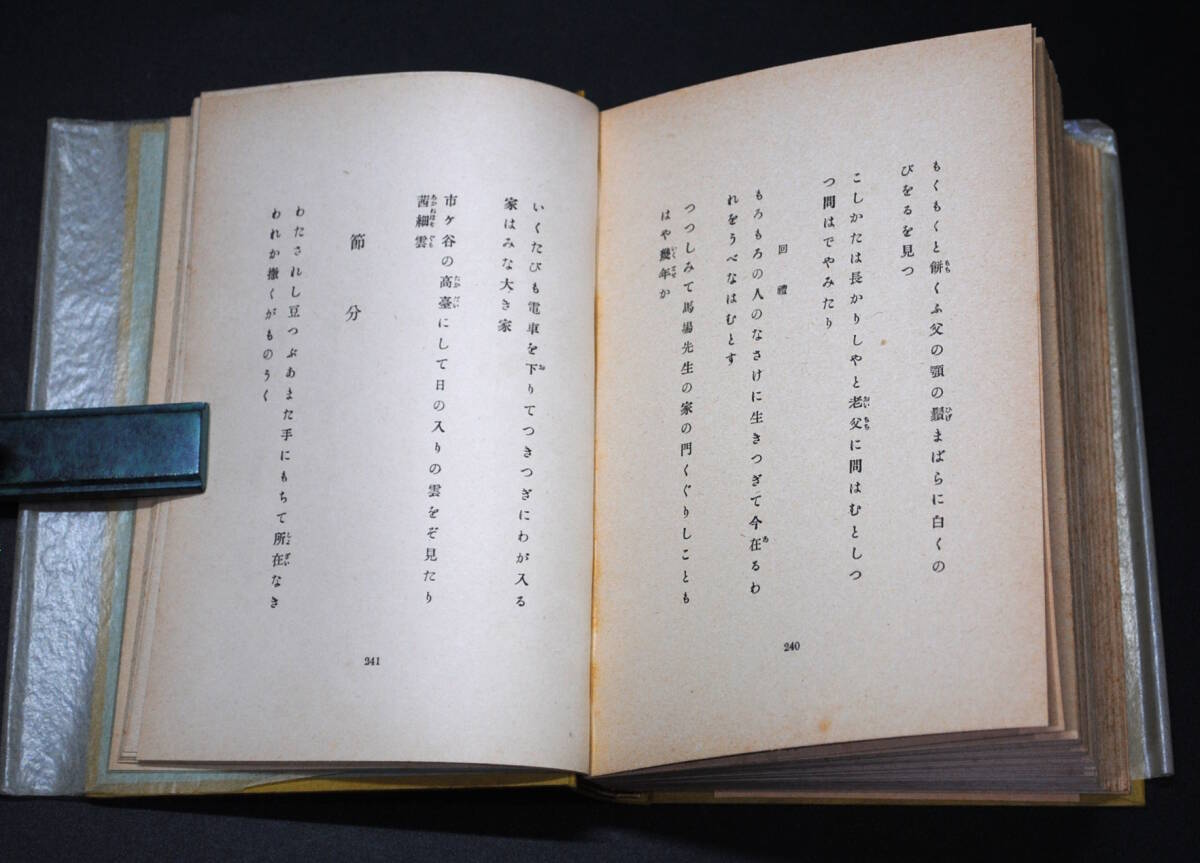 もくもくと餠くふ父の顎の鬚まばらに白くの
びをるを見つ
こしかたは長かりしやと老父に問はむとしつ
つ問はでやみたり
回禮
もろもろの人のなさけに生きつぎて今在るわ
れをうべなはむとす
つつしみて馬場先生の家の門くぐりしことも
はや幾年か
240
いくたびも電車を下りてつきつぎにわが入る
家はみな大き家
市ケ谷の高臺にして日の入りの雲をぞ見たり
茜細雲
節分
わたされし豆つぶあまた手にもちて所在なき
われか撒くがものうく
241